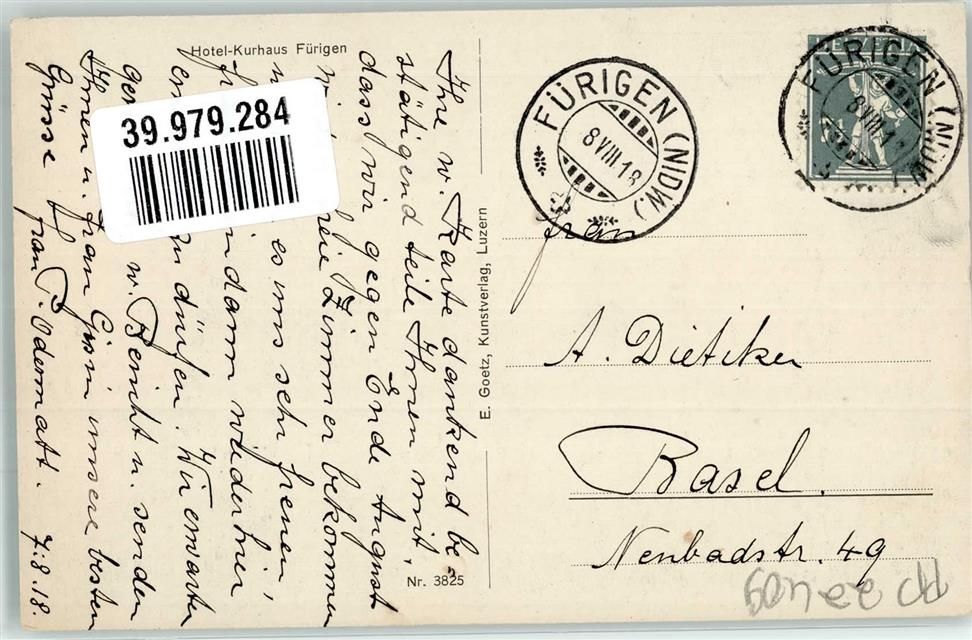 Hotel-Kurhaus Fürigen
39.979.284
Ihre w. Karte dankend be-
stätigend teile Ihnen mit,
dass wir gegen Ende August
Zimmer bekommen
es uns sehr freuen,
dann wiederhier
zu dürfen. Wir erwarten
gern w. Bericht u. senden
Ihnen u. Fran unsere besten
Grüsse Frau P. Odermatt.
7.8.18.
E. Goetz, Kunstverlag, Luzern
Nr. 3825
FÜRIGEN (NIDW.)
8 VIII 18
HELVETIA
FÜRIGEN (NIDW.)
8 VIII 1
Frau
A. Dietiker
Basel.
Neubadstr. 49